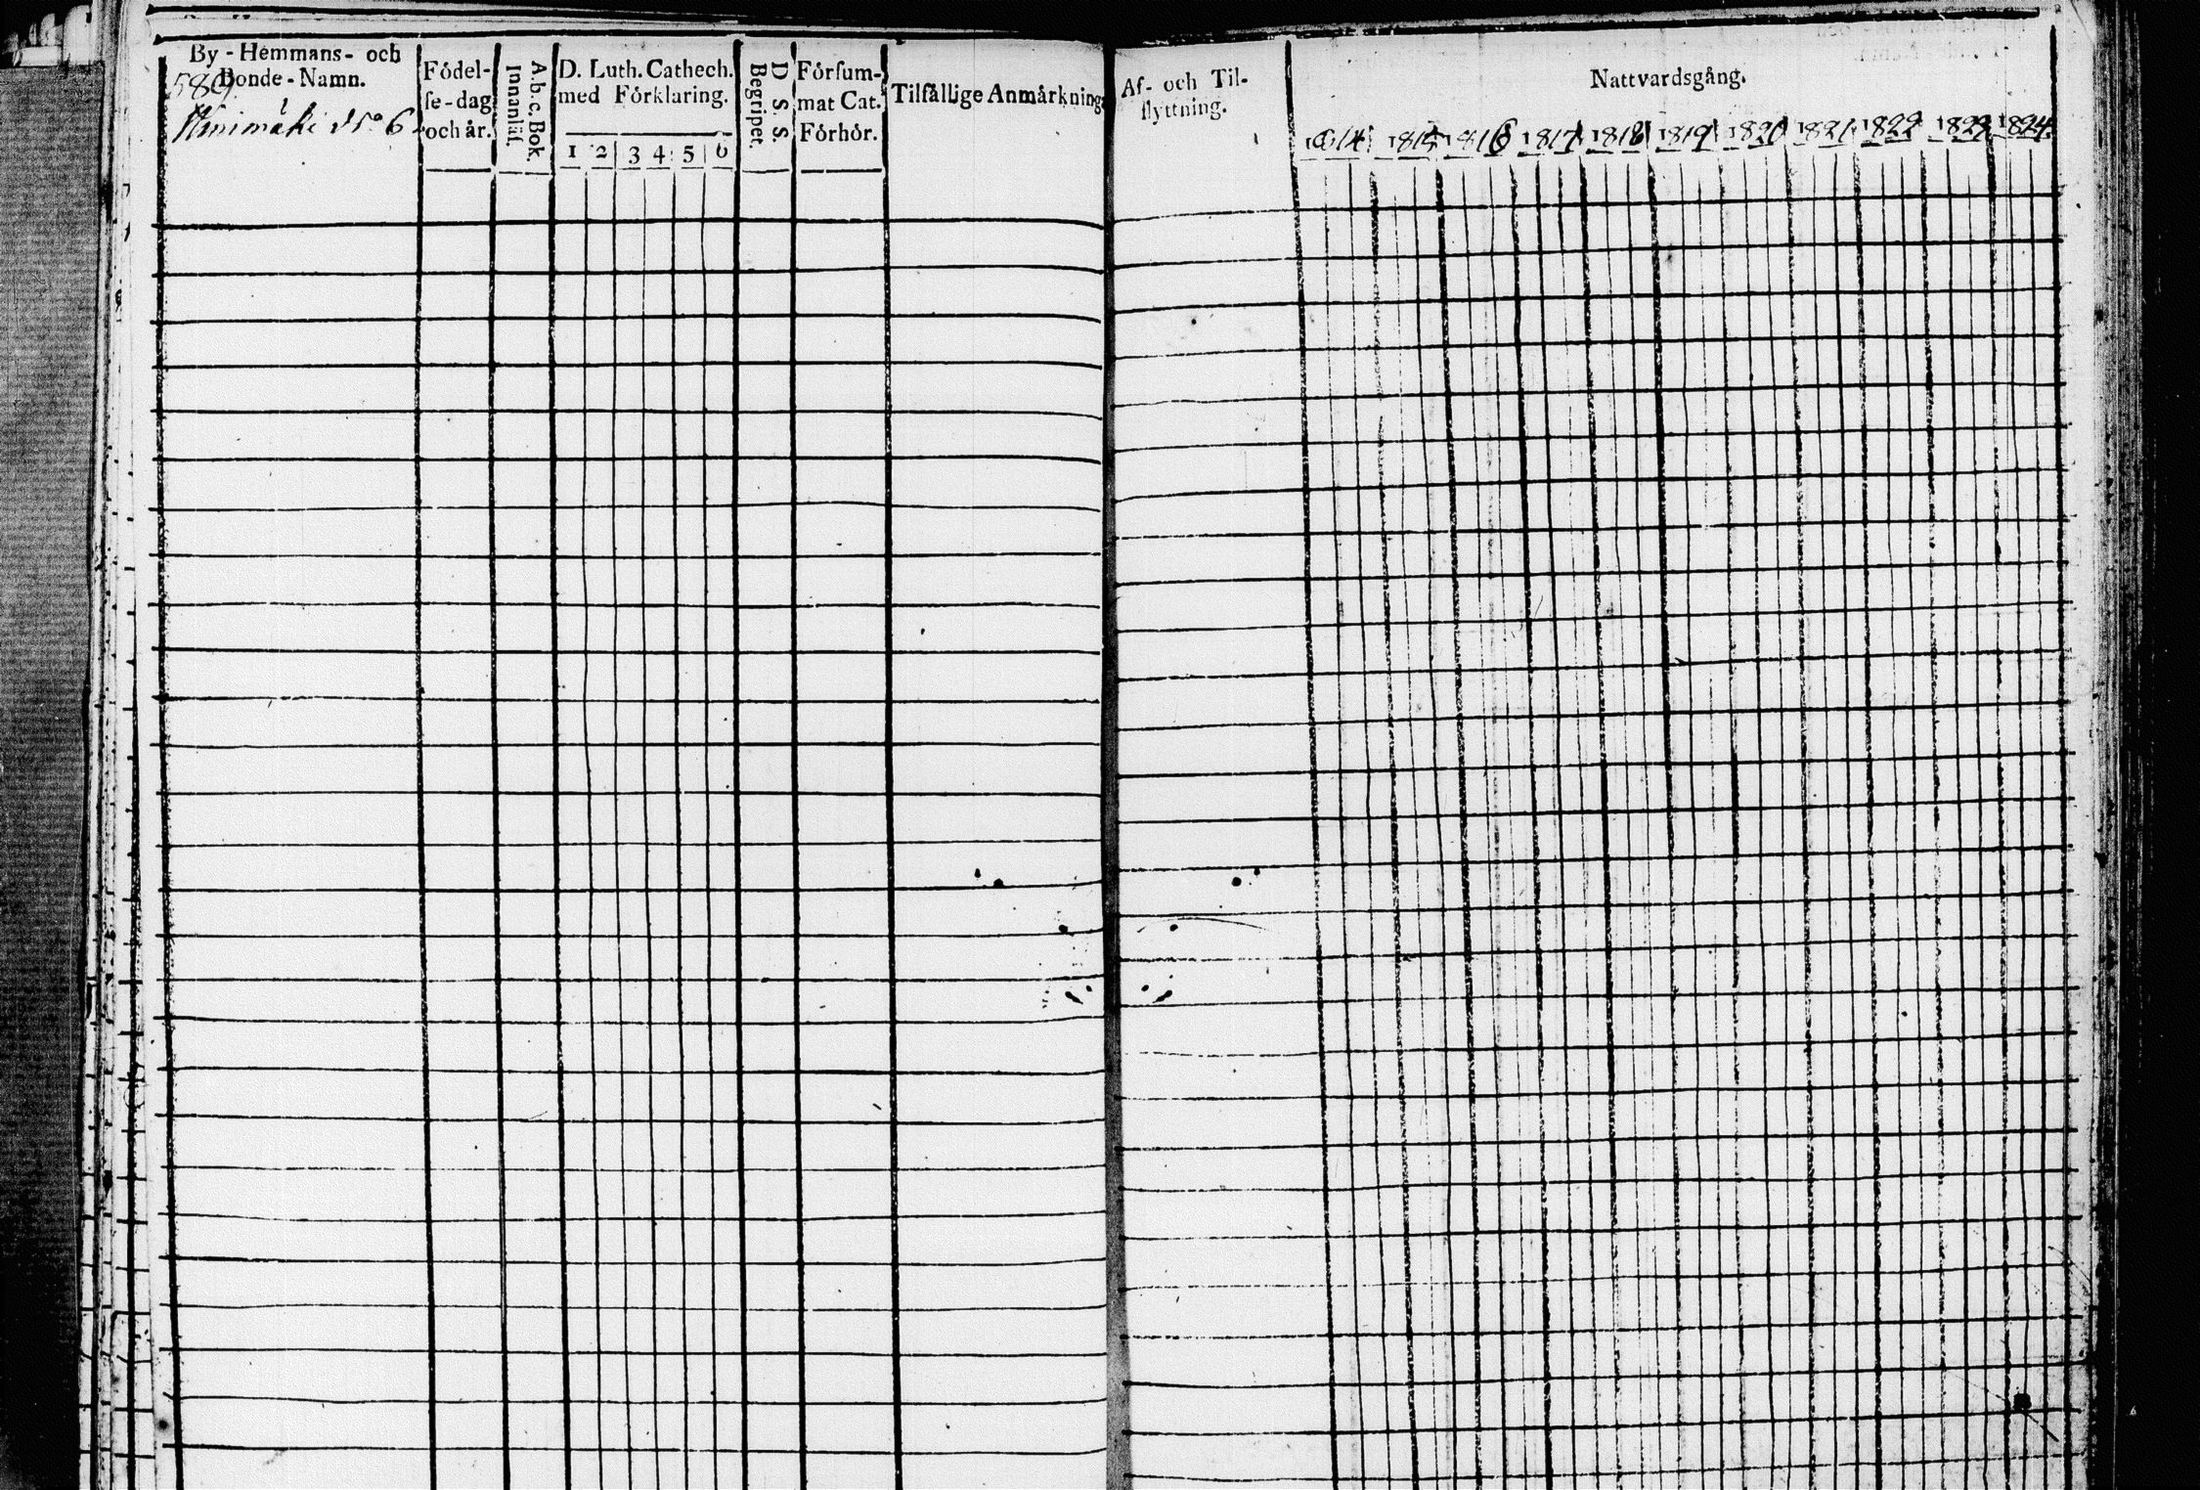 By - Hemmans- och
Bonde - Namn.
589.
N:o 6
Födel-
se-dag
och år.
A.b.c. Bok.
Innanläs.
D. Luth. Cathech.
med Förklaring.
1 2 3 4 5 6
D. S. S.
Begripet.
Försum-
mat Cat.
Förhör.
Tilfällige Anmärkning
Af- och Til-
flyttning.
Nattvardsgång.
1814 1815 1816 1817 1818 1819 1820 1821 1822 1823 1824